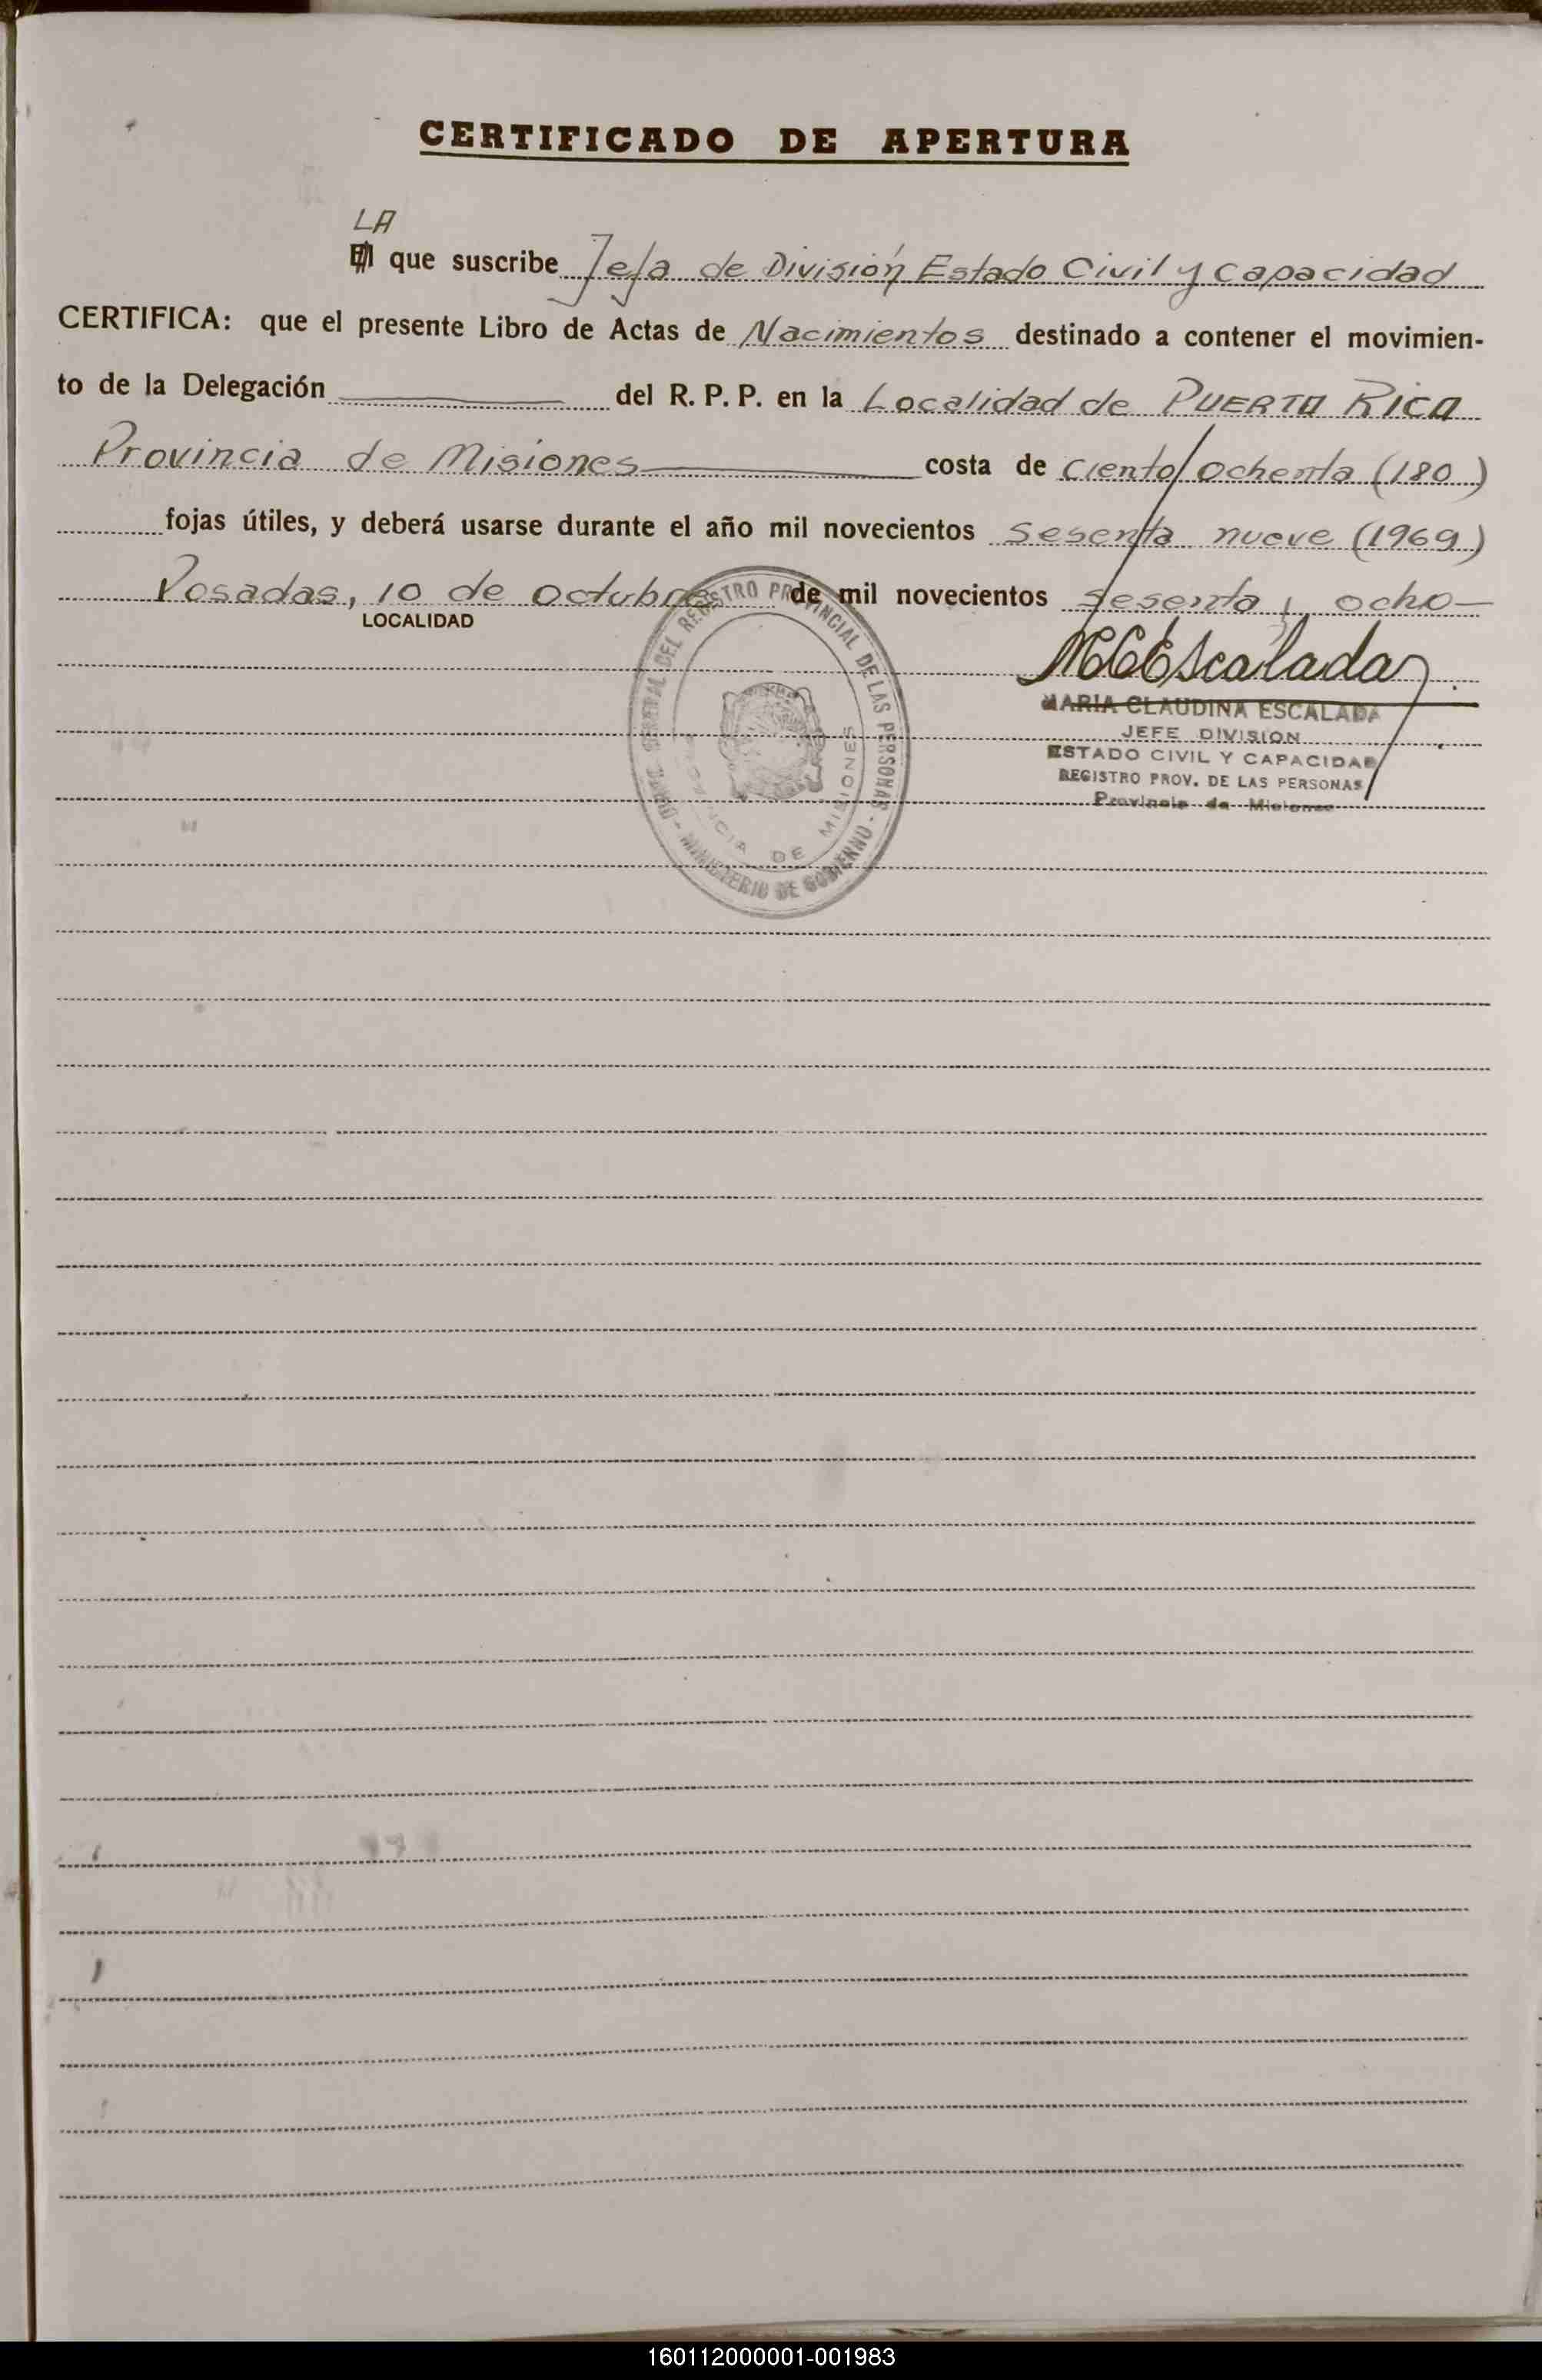 CERTIFICADO DE APERTURA
LA
El que suscribe Jefa de División Estado Civil y Capacidad
CERTIFICA: que el presente Libro de Actas de Nacimientos destinado a contener el movimien-
to de la Delegación del R. P. P. en la Localidad de PUERTO RICO
Provincia de Misiones costa de ciento ochenta (180)
fojas útiles, y deberá usarse durante el año mil novecientos sesenta nueve (1969)
Posadas, 10 de octubre de mil novecientos sesenta y ocho
LOCALIDAD
MCEscalada
MARIA CLAUDINA ESCALADA
JEFE DIVISION
ESTADO CIVIL Y CAPACIDAD
REGISTRO PROV. DE LAS PERSONAS
Provincia de Misiones
GENERAL DEL REGISTRO PROVINCIAL DE LAS PERSONAS - MINISTERIO DE GOBIERNO -
PROVINCIA DE MISIONES
160112000001-001983